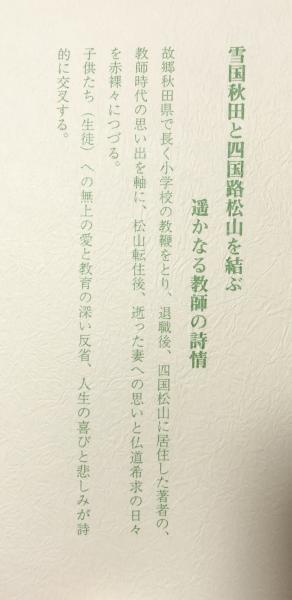 雪国秋田と四国路松山を結ぶ
遥かなる教師の詩情
故郷秋田県で長く小学校の教鞭をとり、退職後、四国松山に居住した著者の、
教師時代の思い出を軸に、松山転住後、逝った妻への思いと仏道希求の日々
を赤裸々につづる。
子供たち（生徒）への無上の愛と教育の深い反省、人生の喜びと悲しみが詩
的に交叉する。